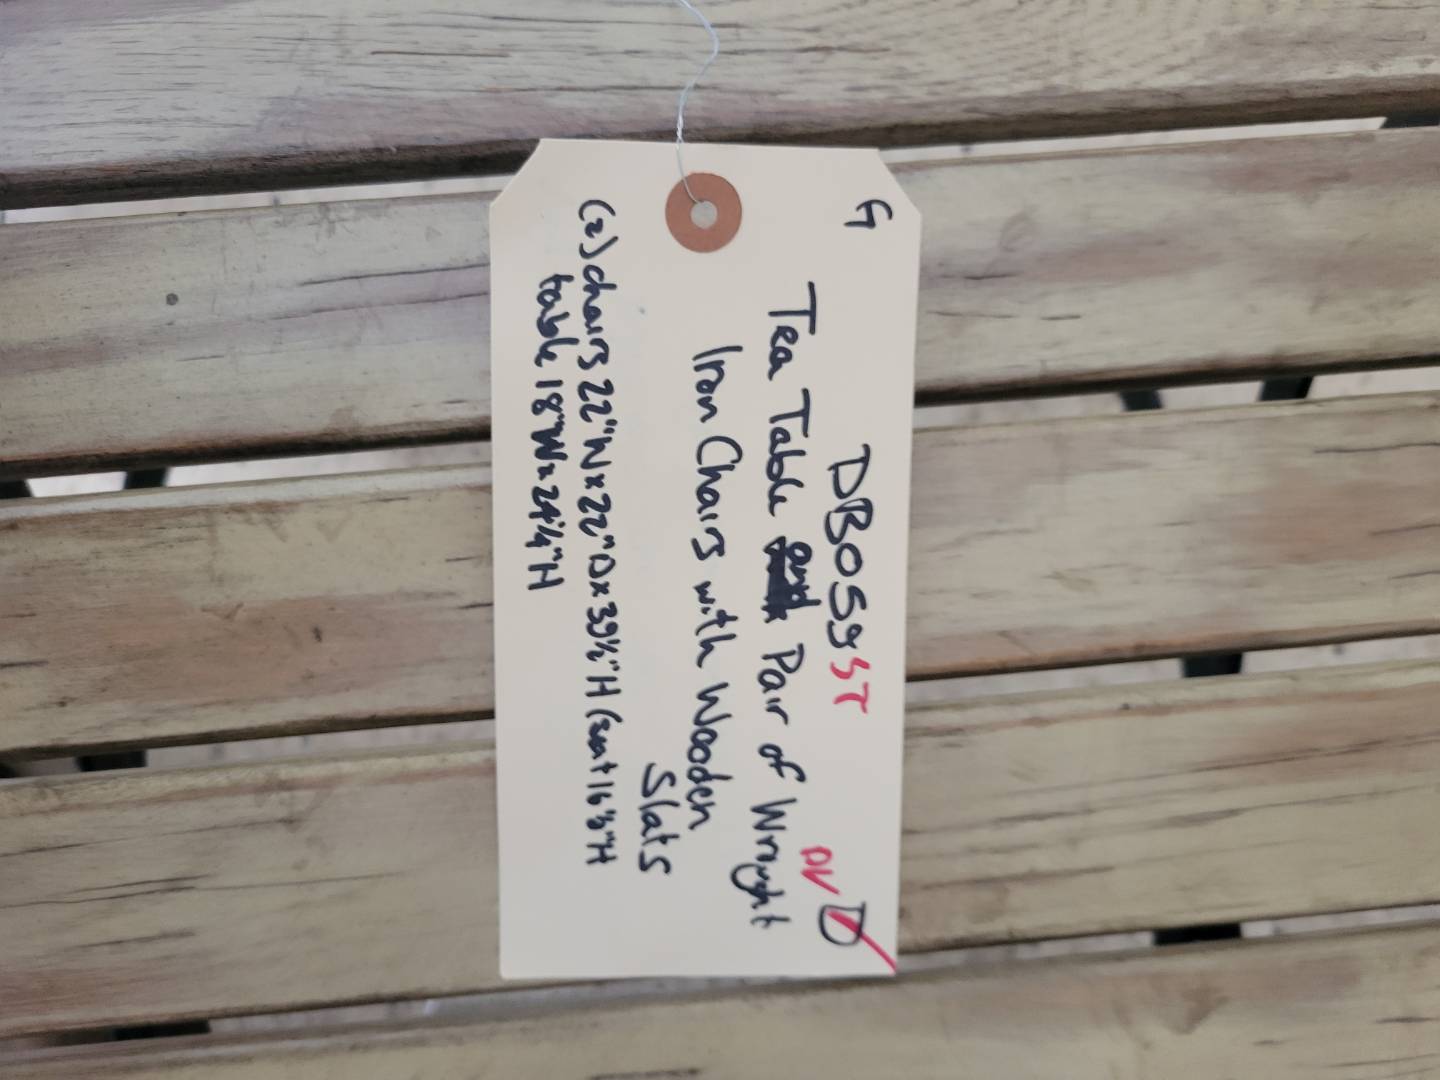 G
DB059ST
DV D
Tea Table and Pair of Wrought
Iron Chairs with Wooden
Slats
(2) chairs 22"W x 22"D x 39½"H (seat 16½"H
table 18"W x 24¼"H